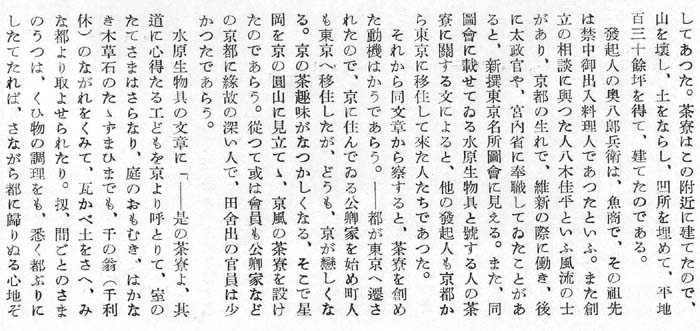 してあつた。茶寮はこの附近に建てたので、
山を壞し、土をならし、凹所を埋めて、平地
百三十餘坪を得て、建てたのである。
發起人の奧八郞兵衞は、魚商で、その祖先
は禁中御出入料理人であつたといふ。また創
立の相談に與つた人八木佳平といふ風流の士
があり、京都の生れで、維新の際に働き、後
に太政官や、宮内省に奉職してゐたことがあ
ると、新撰東京名所圖會に見える。また、同
圖會に載せてゐる水原生物具と號する人の茶
寮に關する文によると、他の發起人も京都か
ら東京に移住して來た人たちであつた。
それから同文章から察すると、茶寮を創め
た動機はかうであらう。――都が東京へ遷さ
れたので、京に住んでゐる公卿家を始め町人
も東京へ移住したが、どうも、京が戀しくな
る。京の茶趣味がなつかしくなる、そこで星
岡を京の圓山に見立てゝ、京風の茶寮を設け
たのであらう。從つて或は會員も公卿家など
の京都に緣故の深い人で、田舍出の官員は少
かつたであらう。
水原生物具の文章に「――是の茶寮よ、其
道に心得たる工どもを京より呼とりて、室の
たてさまはさらなり、庭のおもむき、はかな
き木草石のたゝずまひまでも、千の翁（千利
休）のながれをくみて、瓦かべ土をさへ、み
な都より取よせられたり。扨、間ごとのさま
のうつは、くひ物の調理をも、悉く都ぶりに
したてたれば、さながら都に歸りぬる心地ぞ